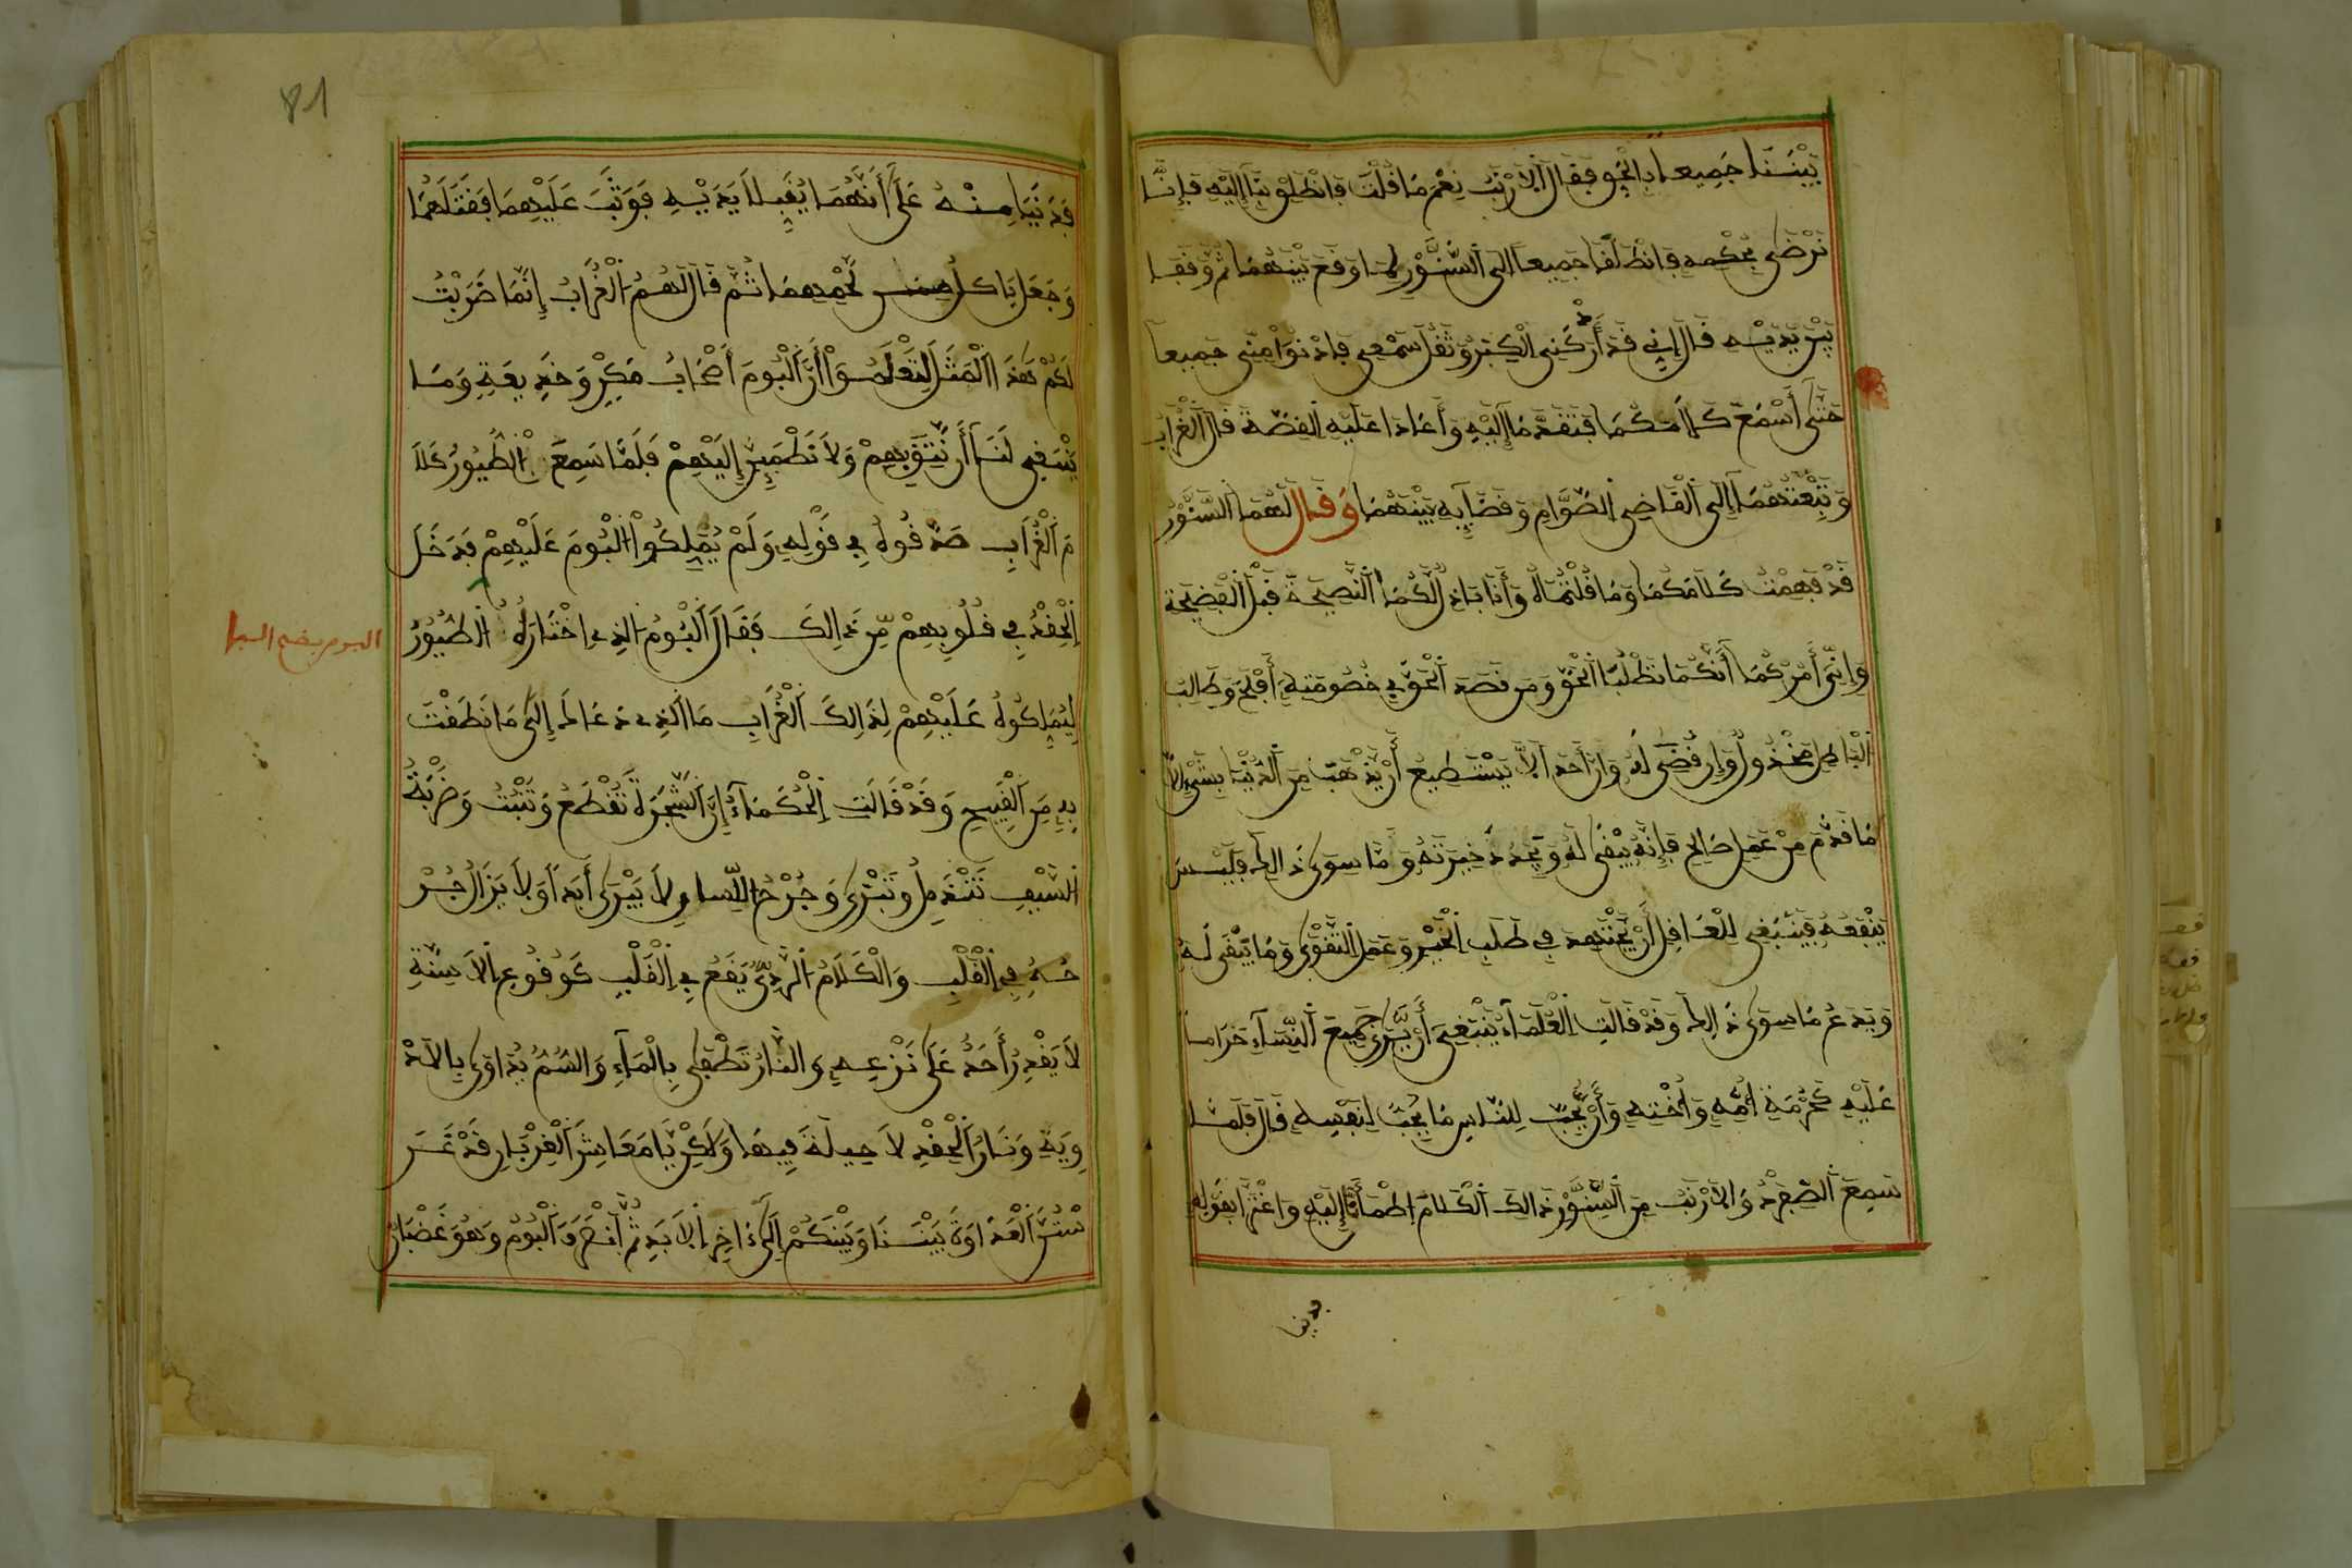 بيننا جميعا بالحق فقال الارنب نعم ما قلت فانطلق بنا إليه فإنا
نرضى بحكمه فانطلقا جميعا الى السنور لما وقع بينهما ثم وقفا
بين يديه قال إني قد أدركني الكبر وثقل سمعي فادنوا مني جميعا
حتى أسمع كلامكما فتقدما إليه وأعادا عليه القصة قال الغراب
وتبعتهما إلى القاضي الصوام وقضايه بينهما وقال لهما السنور
قد فهمت كلامكما وما قلتماه وأنا باذل لكما النصيحة قبل الفضيحة
وإني أمركما أنكما تطلبا الحق ومن قصد الحق في خصومته أفلح وطالب
الباطل مخذول وإن قضي له وإن أحدا لا يستطيع أن يذهب من الدنيا بشيء إلا
ما قدم من عمل صالح فإنه يبقى له ويجده ذخيرته وما سوى ذالك فليس
ينفعه فينبغي للعاقل أن يجتهد في طلب الخير وعمل التقوى وما يبقى له
ويدع ما سوى ذالك وقد قالت العلماء ينبغي أن يرى جميع النساء حراما
عليه كحرمة أمه وأخته وأن يحب للناس ما يحب لنفسه قال فلما
سمع الصفرد والارنب من السنور ذالك الكلام اطمأنا إليه واغترا بقوله
فدنيا
81
فدنيا منه على أنهما يقبلا يديه فوثب عليهما فقتلهما
وجعل ياكل من لحميهما ثم قال لهم الغراب إنما ضربت
لكم هذا المثل لتعلموا أن البوم أصحاب مكر وخديعة وما
ينبغي لنا أن نتق بهم ولا نطمين إليهم فلما سمع الطيور كلا
م الغراب صدقوه في قوله ولم يملكوا البوم عليهم فدخل
الحقد في قلوبهم من ذالك فقال البوم الذي اختاره الطيور
البوم بضم البا
ليملكوه عليهم لذالك الغراب ما الذي دعاك إلى ما نطقت
به من القبيح وقد قالت الحكماء إن الشجرة تقطع وتنبت وضربة
السيف تندمل وتبرى وجرح اللسان لا يبرى أبدا ولا يزال جر
حه في القلب والكلام الردي يقع في القلب كوقوع الاسنة
لا يقدر أحد على نزعه والنار تطفى بالماء والسم يداوى بالاد
وية ونار الحقد لا حيلة فيها ولاكن يا معاشر الغربان قد غر
ستن العداوة بيننا وبينكم إلى ءاخر الابد ثم انحرف البوم وهو غضبان